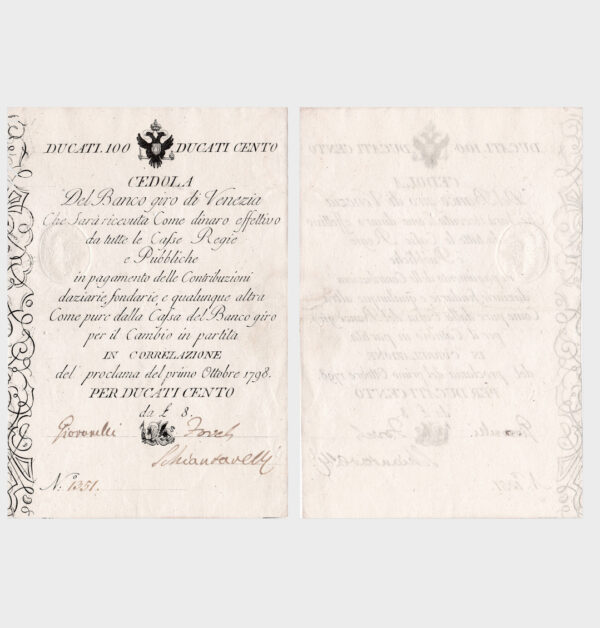 DUCATI. 100 DUCATI CENTO
CEDOLA
Del Banco giro di Venezia
Che Sarà ricevuta Come dinaro effettivo
da tutte le Caſse Regie
e Pùbbliche
in pagamento delle Contribuzioni
daziarie, fondarie, e qualunque altra
Come pure dalla Caſsa del Banco giro
per il Cambio in partita
IN CORRELAZIONE
del proclama del primo Ottobre 1798.
PER DUCATI CENTO
da £ 8.
Giovanelli
Schiantarelli
N.º 1351.